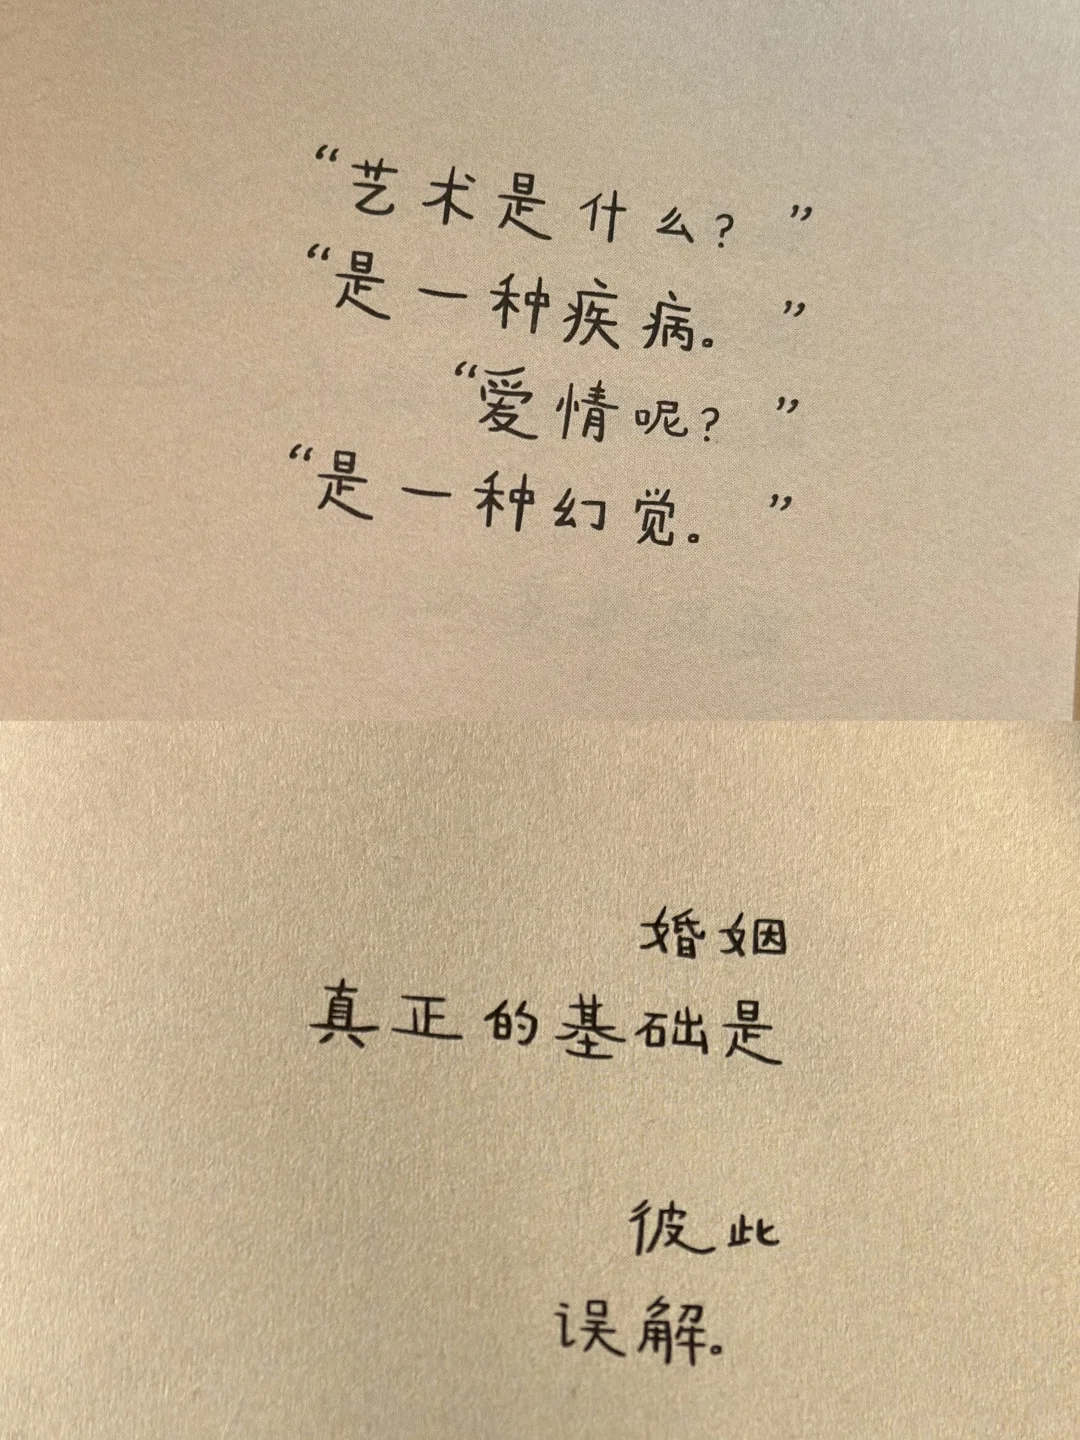 “艺术是什么？”
“是一种疾病。”
“爱情呢？”
“是一种幻觉。”
婚姻
真正的基础是
彼此
误解。